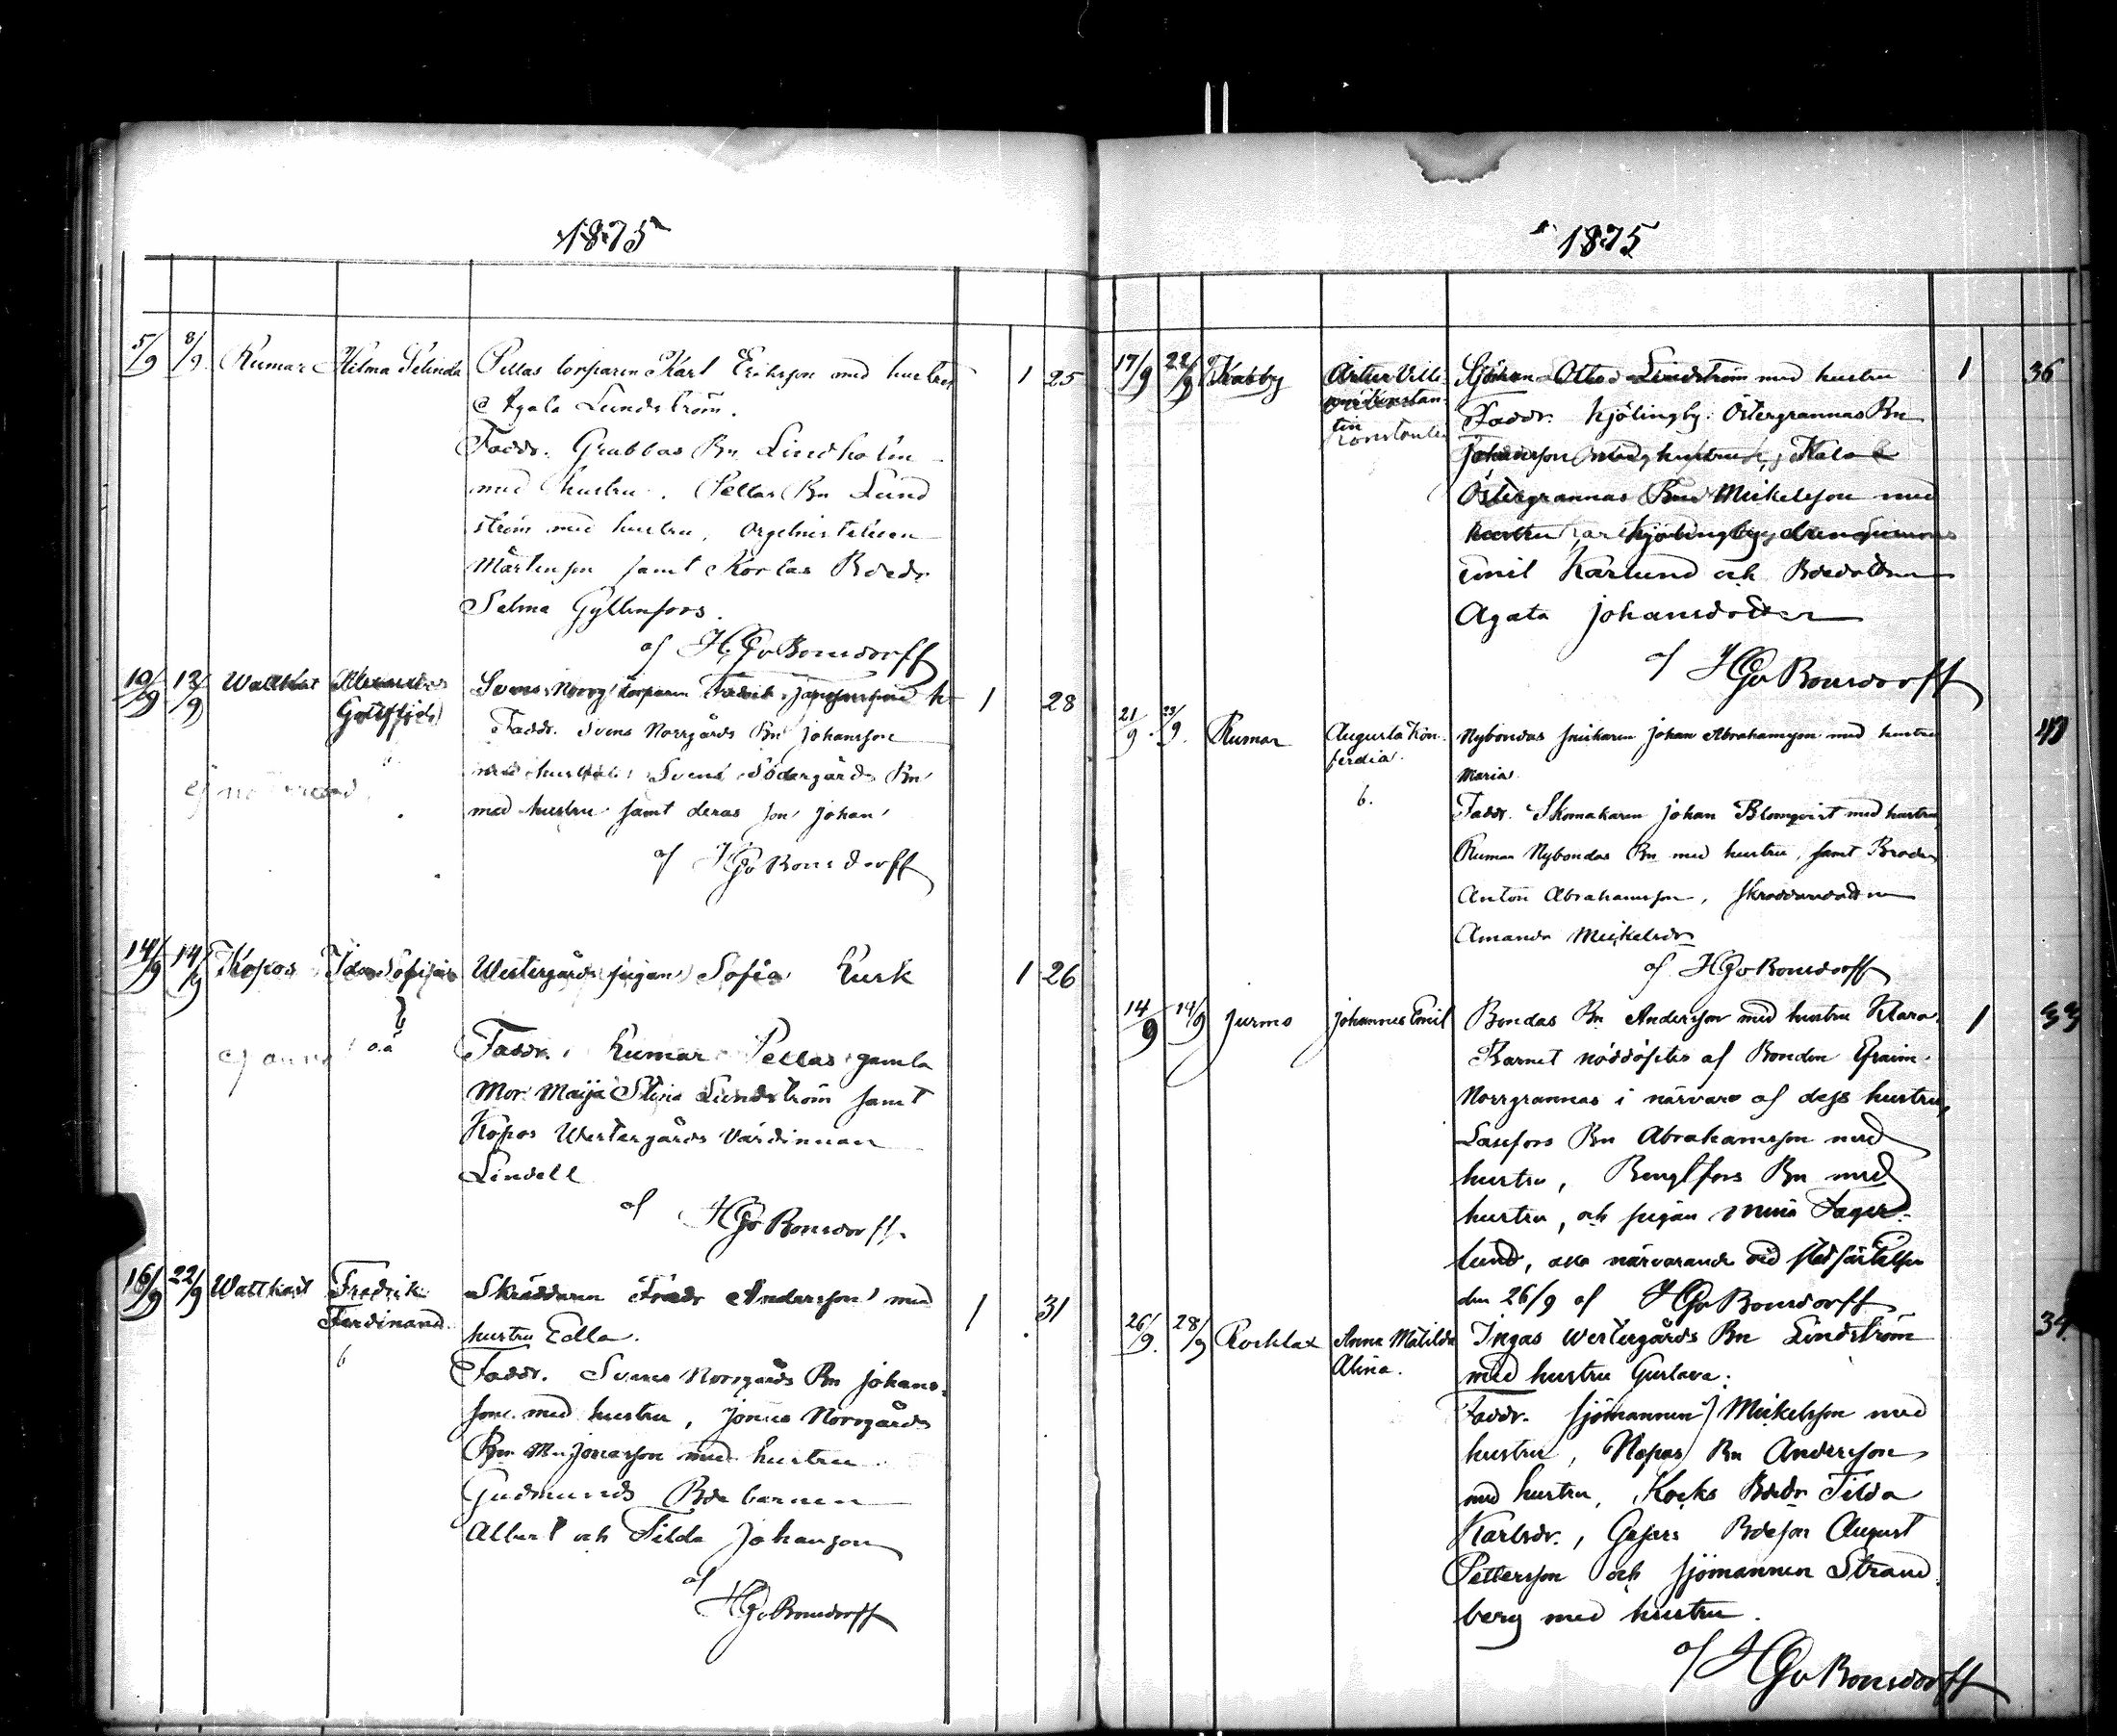 1875
5/9 8/9 Rumar Hilma Selinda Pellas torparen Karl Eriksson med hustru 1 25
Agata Lundström.
Faddr. Grabbas Bn Lindholm
med hustru. Pellas Bn Lund
ström med hustru, Orgelnisten
Mårtensson samt Korlas Bdedr
Selma Gyllenfors.
af HGvBonsdorff
10/9 12/9 Wattkast Alexander Svens Norrg torparen Fredrik med h 1 28
Gottfrid Faddr. Svens Norrgårds Bn Johansson
med hustru Svens Södergårds Bn
med hustru samt deras son Johan
af HGvBonsdorff
14/9 14/9 Kopos Ida Sofia Westergårds pigan Sofia Kurk 1 26
o.ä Faddr. Rumar Pellas gamla
Mor Maija Stina Lundström samt
Kopos Westergårds Värdinnan
Lindell
af HGvBonsdorff.
16/9 22/9 Wattkast Fredrik Skräddaren Fredr Andersson med 1 31
Ferdinand. hustru Edla.
b Faddr. Svens Norrgårds Bn Johans-
son med hustru, Jönses Norrgårds
Bn Jonasson med hustru
Gudmunds Bde barnen
Albert och Tilda Johansson
af
HGvBonsdorff
1875
17/9 22/9 Arter Ville- Sjöman Otto Lindström med hustru 1 36
Konstan- Faddr. Kjölingby Östergrannas Bn
tin Johansson med hustru,
Östergrannas Bn Mickelsson med
hustru Kjölingby
Emil Karlund och Bdedottren
Agata Johansdotter
af HGvBonsdorff
21/9 23/9 Rumar Augusta Kon- Nybondas snickaren Johan Abrahamsson med hustru 40
kordia. Maria.
b. Faddr. Skomakaren Johan Blomqvist med hustru,
Rumar Nybondas Bn med hustru, samt Brodren
Anton Abrahamsson, Skräddaredottren
Amanda Mickelsdr
af HGvBonsdorff
14/9 14/9 Jurmo Johannes Emil Bondas Bn Andersson med hustru Klara. 1 33
Barnet nöddöptes af Bonden Efraim
Norrgrannas i närvaro af dess hustru,
Bn Abrahamsson med
hustru, Bengtsfors Bn med
hustru, och pigan Mina Fager-
lund, närvarande vid
den 26/9 af HGvBonsdorff
26/9. 28/9 Rocklax Anna Matilda Ingas Westergårds Bn Lindström 34
Alina. med hustru Gustava.
Faddr. Sjömannen Mickelsson med
hustru, Bn Andersson
med hustru, Kocks Bdedr Tilda
Karlsdr., Bdeson August
Pettersson och sjömannen Strand-
berg med hustru.
af HGvBonsdorff